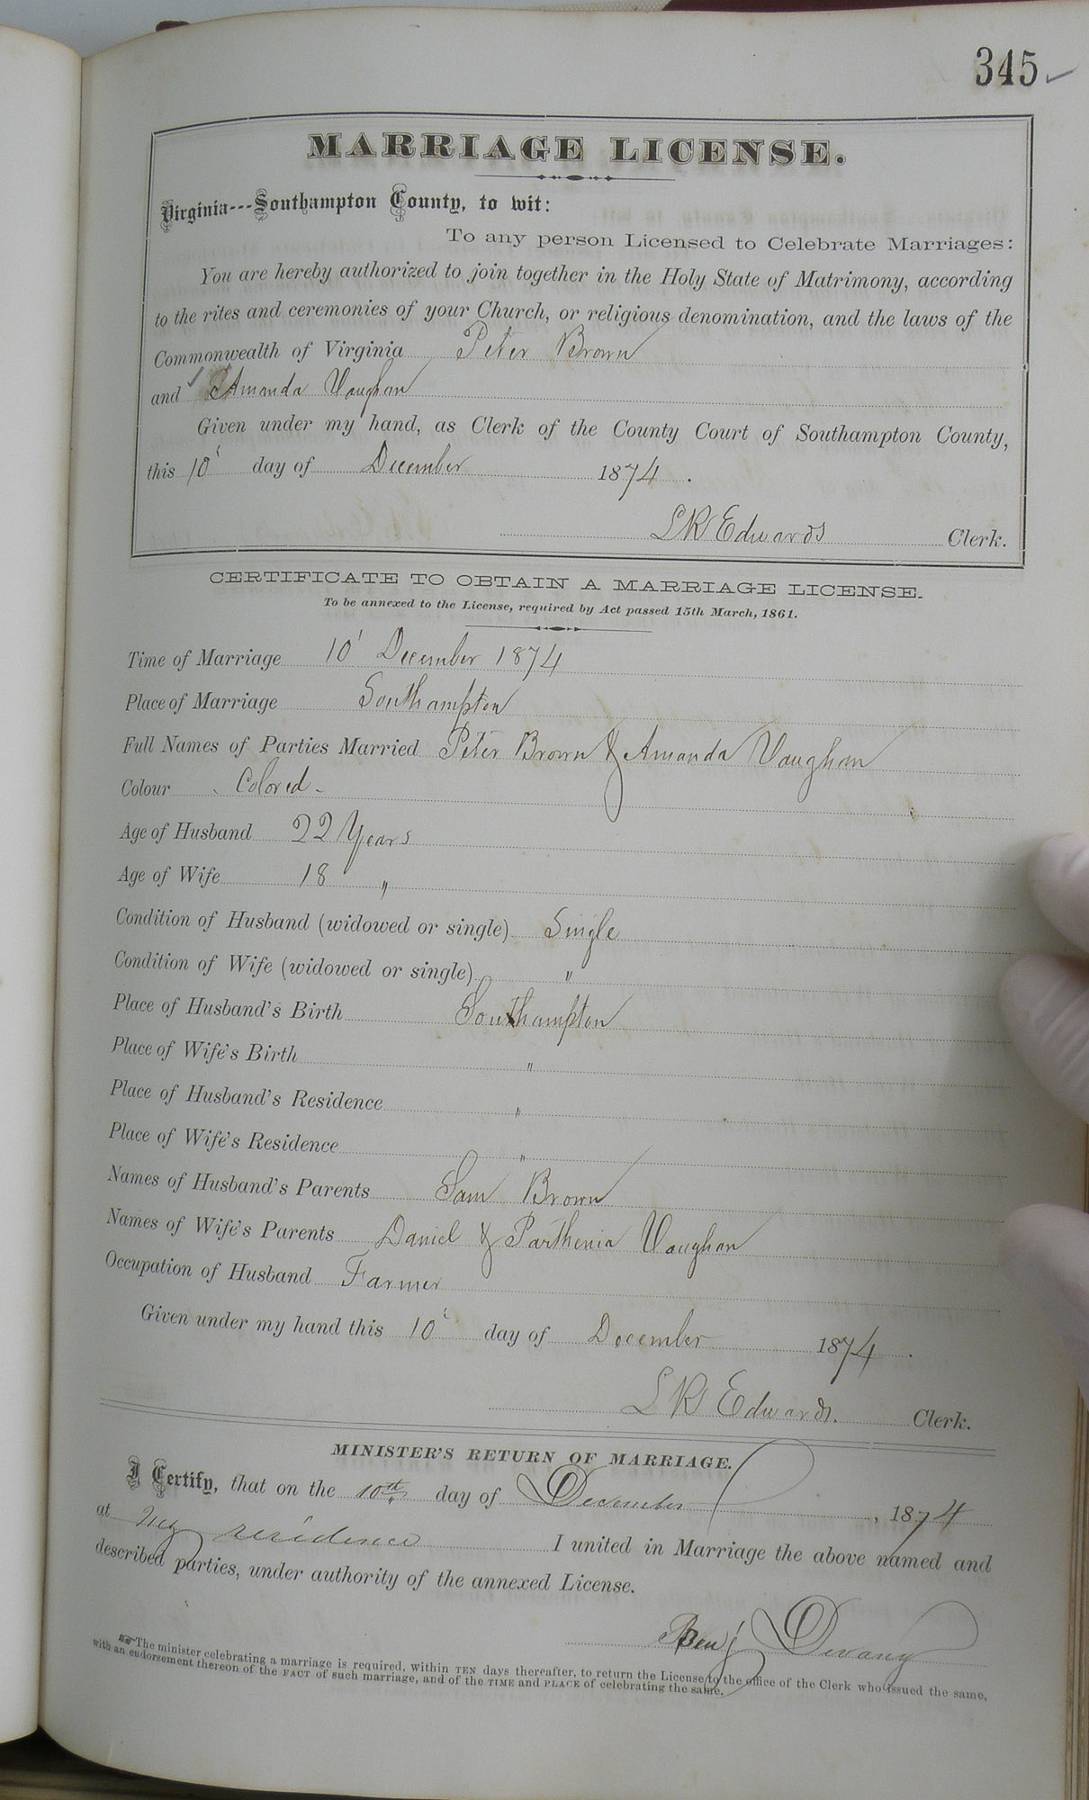 345
MARRIAGE LICENSE.
Virginia---Southampton County, to wit:
To any person Licensed to Celebrate Marriages:
You are hereby authorized to join together in the Holy State of Matrimony, according
to the rites and ceremonies of your Church, or religious denomination, and the laws of the
Commonwealth of Virginia Peter Brown
and Amanda Vaughan
Given under my hand, as Clerk of the County Court of Southampton County,
this 10' day of December 1874.
L R Edwards Clerk.
CERTIFICATE TO OBTAIN A MARRIAGE LICENSE.
To be annexed to the License, required by Act passed 15th March, 1861.
Time of Marriage 10' December 1874
Place of Marriage Southampton
Full Names of Parties Married Peter Brown & Amanda Vaughan
Colour Colored
Age of Husband 22 Years
Age of Wife 18 "
Condition of Husband (widowed or single) Single
Condition of Wife (widowed or single) "
Place of Husband's Birth Southampton
Place of Wife's Birth "
Place of Husband's Residence "
Place of Wife's Residence "
Names of Husband's Parents Sam Brown
Names of Wife's Parents Daniel & Parthenia Vaughan
Occupation of Husband Farmer
Given under my hand this 10' day of December 1874.
L R Edwards. Clerk.
MINISTER'S RETURN OF MARRIAGE.
I Certify, that on the 10th day of December, 1874
at my residence I united in Marriage the above named and
described parties, under authority of the annexed License.
Benj Devany
☞ The minister celebrating a marriage is required, within TEN days thereafter, to return the License to the office of the Clerk who issued the same,
with an endorsement thereon of the FACT of such marriage, and of the TIME and PLACE of celebrating the same.